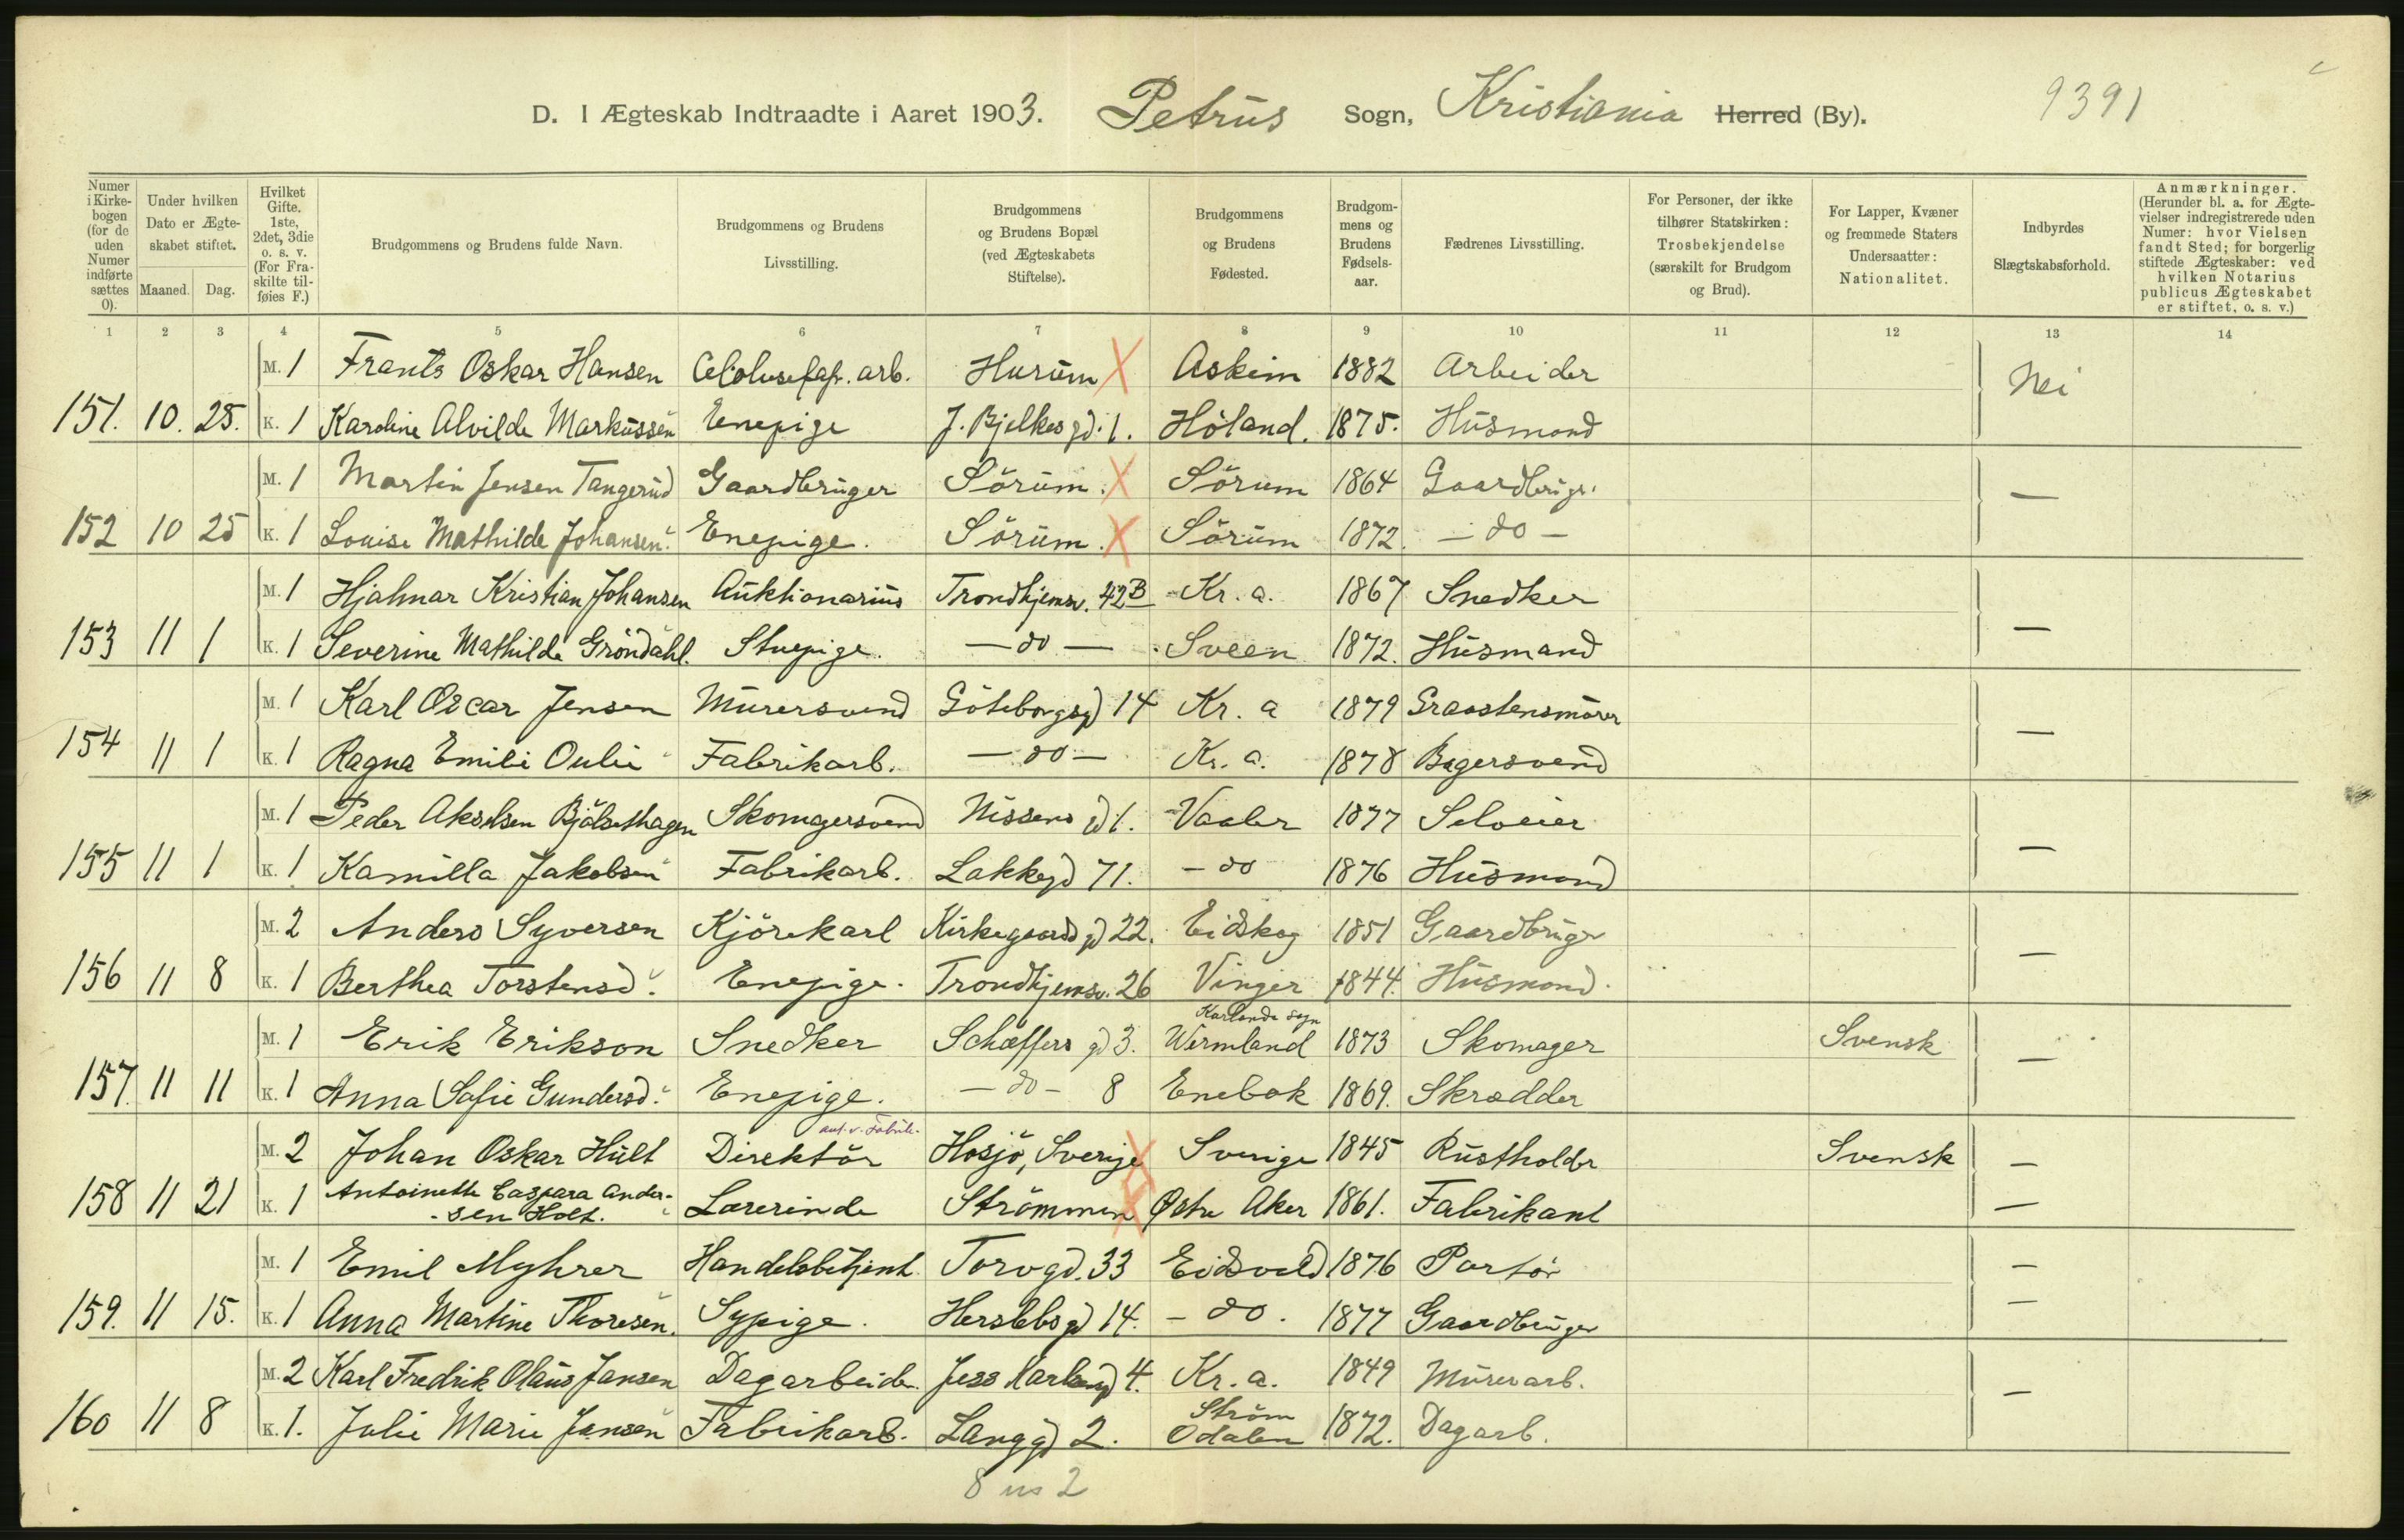 9391
D. I Ægteskab Indtraadte i Aaret 1903. Petrus Sogn, Kristiania Herred (By).
Numer i Kirkebogen (for de uden Numer indførte sættes 0).
Under hvilken Dato er Ægteskabet stiftet.
Maaned. Dag.
Hvilket Gifte. 1ste, 2det, 3die o. s. v. (For Fraskilte tilføies F.)
Brudgommens og Brudens fulde Navn.
Brudgommens og Brudens Livsstilling.
Brudgommens og Brudens Bopæl (ved Ægteskabets Stiftelse).
Brudgommens og Brudens Fødested.
Brudgommens og Brudens Fødselsaar.
Fædrenes Livsstilling.
For Personer, der ikke tilhører Statskirken: Trosbekjendelse (særskilt for Brudgom og Brud).
For Lapper, Kvæner og fremmede Staters Undersaatter: Nationalitet.
Indbyrdes Slægtskabsforhold.
Anmærkninger. (Herunder bl. a. for Ægtevielser indregistrerede uden Numer: hvor Vielsen fandt Sted; for borgerlig stiftede Ægteskaber: ved hvilken Notarius publicus Ægteskabet er stiftet, o. s. v.)
1 2 3 4 5 6 7 8 9 10 11 12 13 14
M. 1 Frants Oskar Hansen arb. Hurum X Askim 1882 Arbeider Nei
151. 10. 25. K. 1 Karoline Alvilde Markussen Enepige J. Bjelkesgd. 1. Höland. 1875. Husmand
M. 1 Martin Jensen Tangerud Gaardbruger Sörum. X Sörum 1864 Gaardbrugr. —
152 10 25 K. 1 Louise Mathilde Johansen Enepige. Sörum. X Sörum 1872. — do —
M. 1 Hjalmar Kristian Johansen Auktionarius Trondhjemsv. 42B Kr. a. 1867 Snedker —
153 11 1 K. 1 Severine Mathilde Gröndahl. Stuepige. — do — Sveen 1872. Husmand
M. 1 Karl Oscar Jensen Murersvend Göteborgsgd 14 Kr. a 1879 Graastensmurer —
154 11 1 K. 1 Ragna Emilie Oulie Fabrikarb. — do — Kr. a. 1878 Bagersvend
M. 1 Peder Akselsen Bjölsethagen Skomagersvend Nissens gd 1. Vaaler 1877 Selveier —
155 11 1 K. 1 Kamilla Jakobsen Fabrikarb. Lakkegd 71. — do 1876 Husmand
M. 2 Anders Syversen Kjörekarl Kirkegaardsgd 22. Eidskog 1851 Gaardbruger —
156 11 8 K. 1 Berthea Torstensd. Enepige. Trondhjemsv. 26 Vinger 1844. Husmand.
Karlanda sogn
M. 1 Erik Erikson Snedker Schæffers gd 3. Wermland 1873 Skomager Svensk —
157. 11 11 K. 1 Anna Sofie Gundersd. Enepige. — do — 8 Enebak 1869. Skrædder
M. 2 Johan Oskar Hult Direktör Hosjö, Sverige X Sverige 1845 Rustholder Svensk —
Antoinette Caspara Ander-
158 11 21 K. 1 -sen Holt. Lærerinde Strömmen X Østre Aker 1861. Fabrikant —
M. 1 Emil Myhrer Handelsbetjent Torvgd. 33 Eidsvold 1876 Portör —
159. 11 15. K. 1 Anna Martine Thoresen. Sypige. Herslebsgd 14. — do. 1877 Gaardbruger —
M. 2 Karl Fredrik Olaus Jansen Dagarbeider. Jess Karlsgd 4. Kr. a. 1849 Murerarb. —
Ström
160 11 8 K. 1. Julie Marie Jansen Fabrikarb. Langgd 2. Odalen 1872. Dagarb.
8 us 2